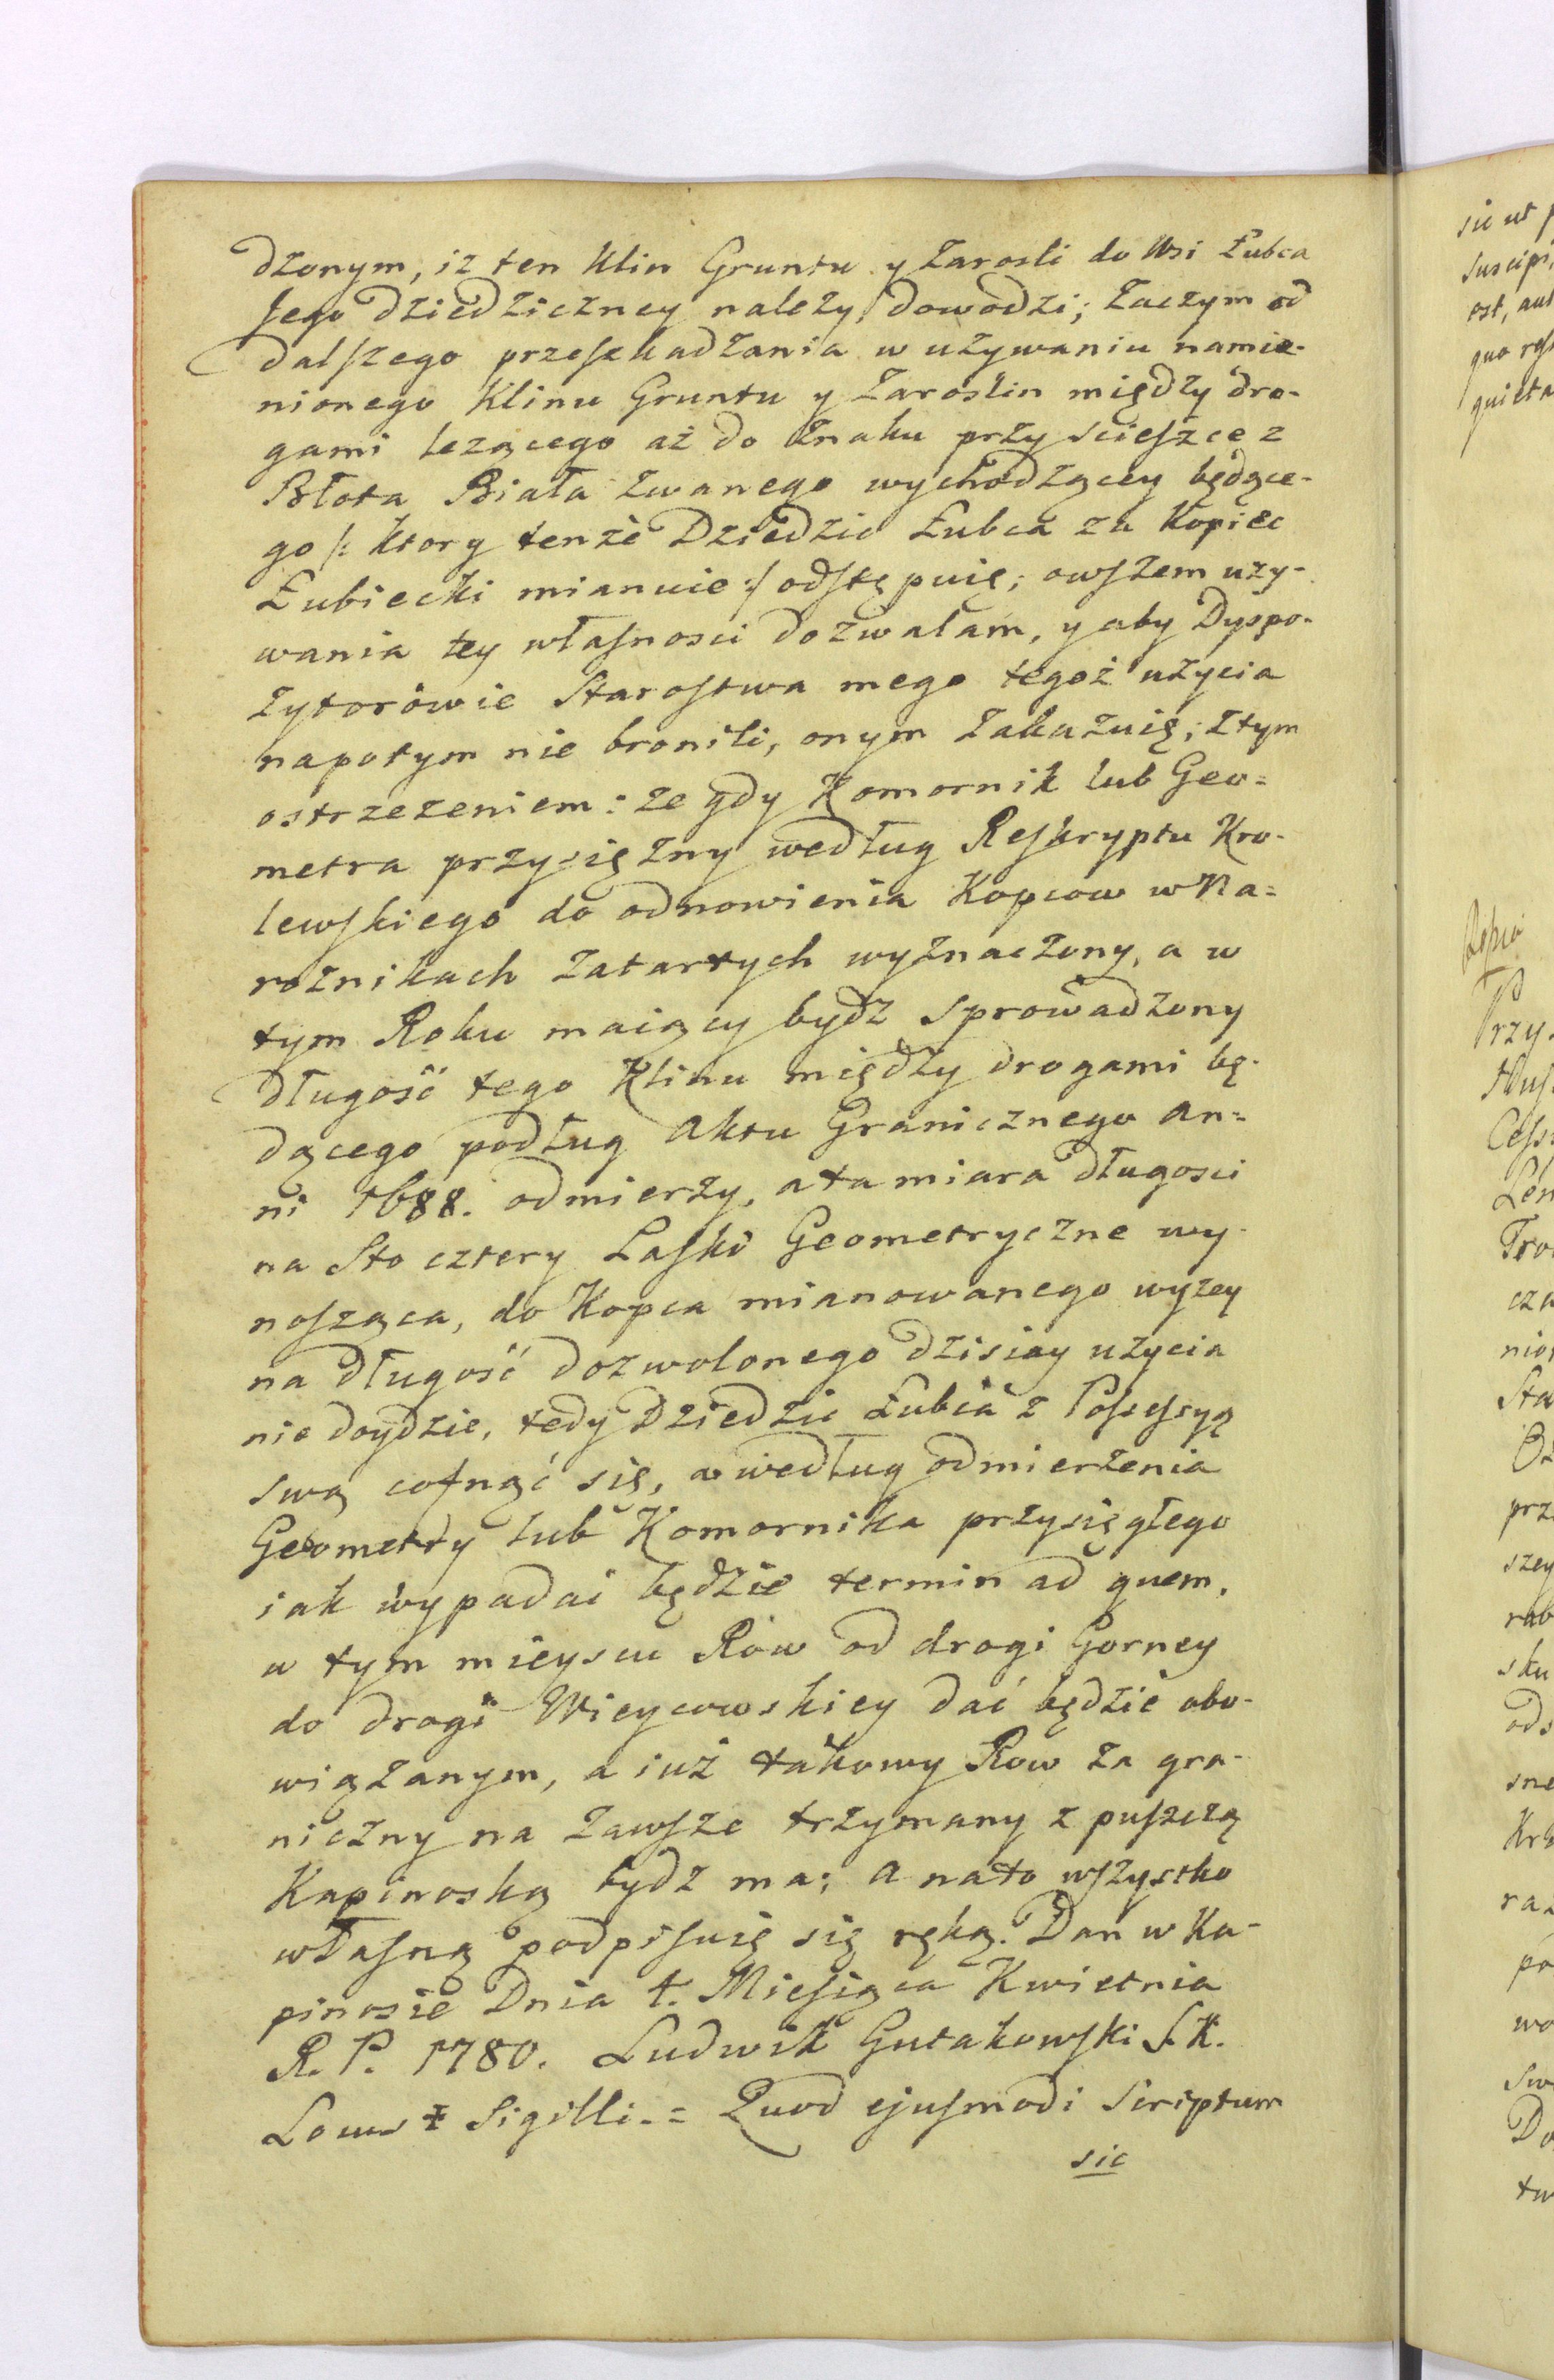 dzonym, iz ten Klin Gruntu y Zarosli do Wsi Łubca
Jego Dziedziczney nalezy, dowodzi; Zaczym od
dalszego przeszkadzania w uzywaniu namie-
nionego Klinu Gruntu y Zaroslin między dro-
gami lezącego aż do Znaku przy scieszce z
Błota Biała zwanego wychodzącey będące-
go /: ktory tenże Dziedzic Łubca za Kopiec
Łubiecki mianuie :/ odstępuię; owszem uzy-
wania tey własnosci dozwalam, y aby Dyspo-
zytorówie Starostwa mego tegoż użycia
napotym nie bronili, onym Zakazuię; Z tym
ostrzezeniem: ze gdy Komornik lub Geo=
metra przysięzny według Reskryptu Kro-
lewskiego do odnowienia Kopcow w Na=
roznikach Zatartych wyznaczony, a w
tym Roku maiący bydz sprowadzony
długość tego Klinu między drogami bę-
dącego podług Aktu Granicznego An=
ni 1688. odmierzy, a ta miara długosci
na Sto cztery Laski Geometryczne wy-
nosząca, do Kopca mianowanego wyzey
na długość dozwolonego dzisiay uzycia
nie doydzie, tedy Dziedzic Łubca z Possessyą
swą cofnąć się, a według odmierzenia
Geometry lub Komornika przysięgłego
iak wypadai będzie termin ad quem,
w tym mieyscu Rów od drogi Gorney
do drogi Wieycowskiey dać będzie obo-
wiązanym, a iuż takowy Row za gra-
niczny na Zawsze trzymany z puszczą
Kapinoską bydz ma; a na to wszystko
własną podpisuię się ręką. Dan w Ka-
pinosie Dnia 1. Miesiąca Kwietnia
R. P. 1780. Ludwik Gutakowski S. K.
Locus ‡ Sigilli. = Quod ejusmodi Scriptum
sic
sic ut
suscipi
est, aut
quo
quieta
Przy
Cess
Len
cza
nio
Sta
prz
szey
rab
sku
ods
sne
raz
po
wo
Sw
Do
tw